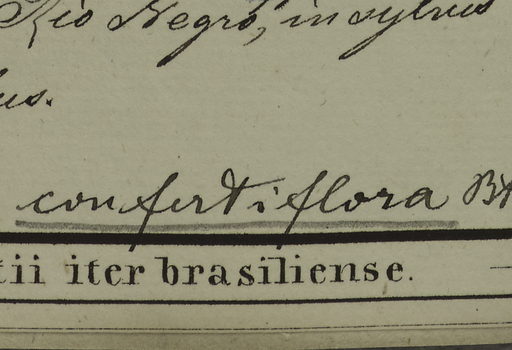 Rio Negro, in sylvis
us.
confertiflora Bth
tii iter brasiliense.